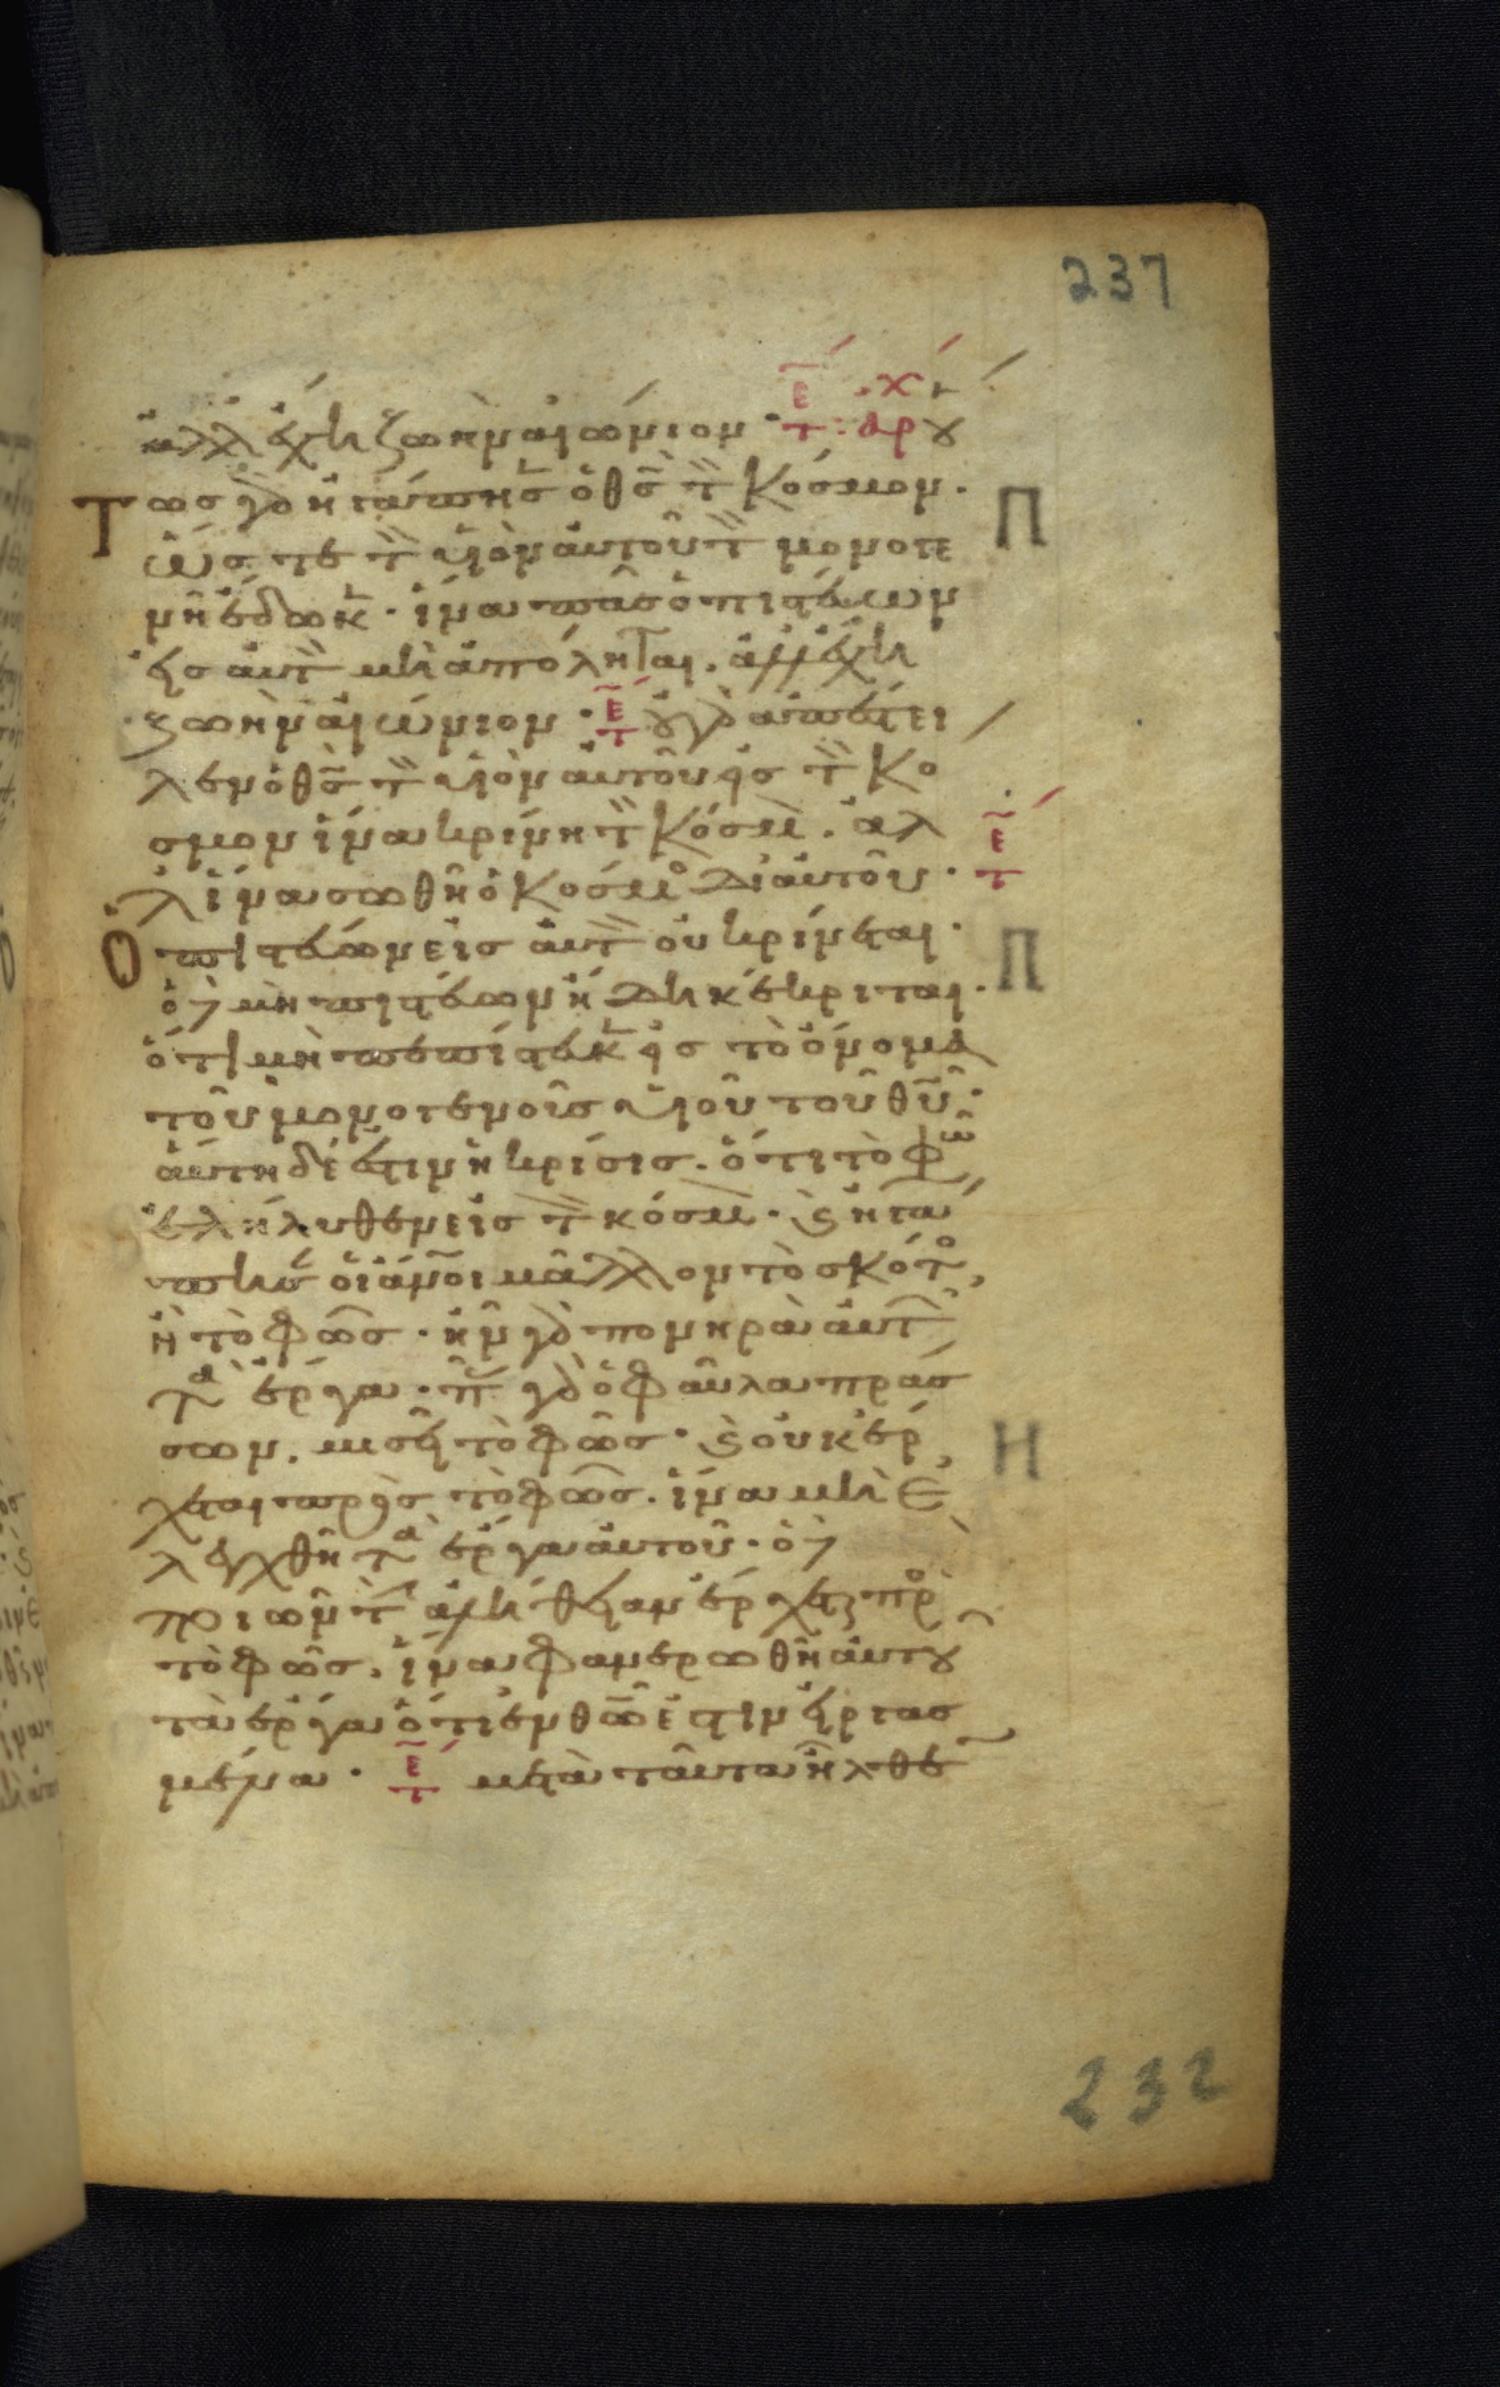 237
ἀλλ ἔχη ζωὴν αἰώνιον · τε: ἀρχ ου
Τως γὰρ ἠγάπησεν ὁ θς τὸν Κόσμον ·
ὥστε τὸν υἱὸν αὐτοῦ τὸν μονογε
νῆ ἔδωκεν · ἵνα πᾶς ὁ πιστεύων
εἰς αὐτὸν μὴ ἀπόληται · ἀλλ ἔχη
ζωὴν αἰώνιον · τε οὐ γὰρ ἀπέστει
λεν ὁ θς τὸν υἱὸν αὐτοῦ εἰς τὸν Κο
σμον ἵνα κρίνη τὸν Κόσμον · ἀλ
λ ἵνα σωθῆ ὁ Κόσμος δι αὐτοῦ · τε
Ὁ πιστεύων εἰς αὐτὸν οὐ κρίνεται ·
ὁ δὲ μὴ πιστεύων ἤδη κέκριται ·
ὅτι μὴ πεπίστευκεν εἰς τὸ ὄνομα
τοῦ μονογενοῦς υἱοῦ τοῦ θυ ·
αὕτη δέ ἐστιν ἡ κρίσις · ὅτι τὸ φῶς
ἐλήλυθεν εἰς τὸν κόσμον · καὶ ἠγά
πησαν οἱ ἄνοι μᾶλλον τὸ σκότος,
ἢ τὸ φῶς · ἦν γὰρ πονηρὰ αὐτῶν
τὰ ἔργα · πᾶς γὰρ ὁ φαῦλα πράσ
σων, μισεῖ τὸ φῶς · καὶ οὐκ ἔρ
χεται πρὸς τὸ φῶς · ἵνα μὴ ἐ
λεγχθῆ τὰ ἔργα αὐτοῦ · ὁ δὲ
ποιῶν τὴν ἀλήθειαν ἔρχεται πρὸς
τὸ φῶς · ἵνα φανερωθῆ αὐτοῦ
τὰ ἔργα ὅτι ἐν θῶ ἐστιν εἰργασ
μένα · τε μετὰ ταῦτα ἦλθεν
Π
Π
Η
232